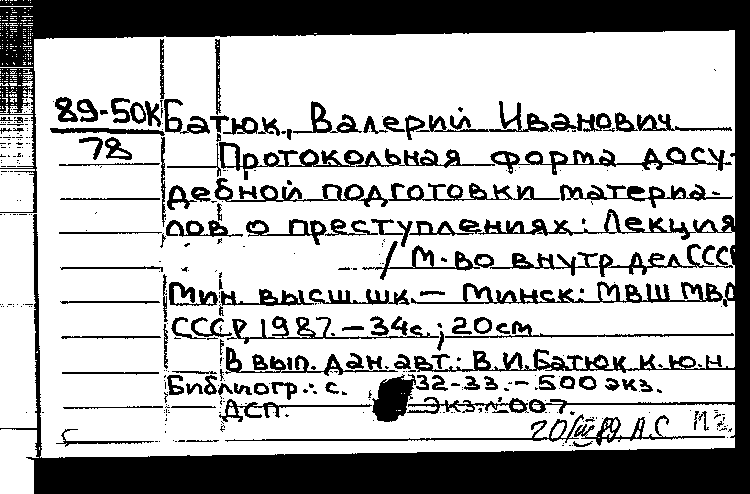 89-50К Батюк, Валерий Иванович
78 Протокольная форма досу-
дебной подготовки материа-
лов о преступлениях: Лекция
/ М-во внутр дел СССР
Мин. высш. шк. — Минск: МВШ МВД
СССР, 1987. — 34с.; 20см.
В вып. дан. авт.: В.И. Батюк к.ю.н.
Библиогр.: с. 32-33. — 500 экз.
ДСП. Экз.№007.
20/III 89. А.С